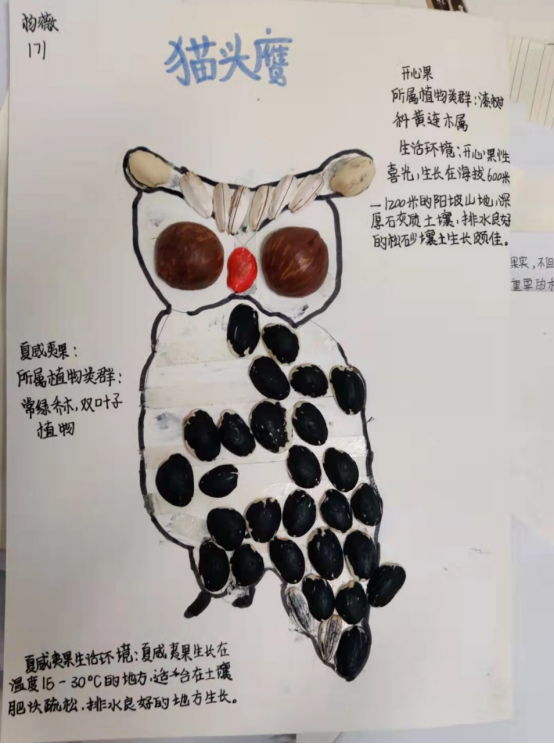 171
猫头鹰
开心果
所属植物类群:漆树
科黄连木属
生活环境:开心果性
喜光,生长在海拔600米
—1200米的阳坡山地,深
厚石灰质土壤,排水良好
的松砂壤土生长颇佳。
果实,不但
里果的木
夏威夷果:
所属植物类群:
常绿乔木,双叶子
植物
夏威夷果生活环境:夏威夷果生长在
温度15-30℃的地方,适合在土壤
肥沃疏松,排水良好的地方生长。